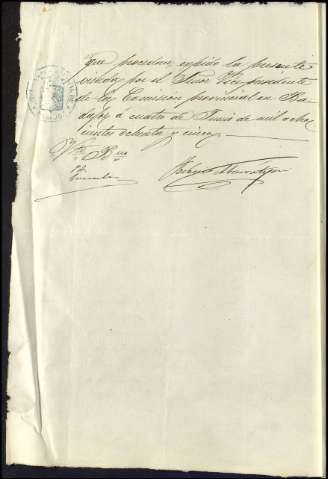 que procedan, expido la presente
visada por el Señor Vicepresidente
de la Comisión provincial en Ba-
dajoz á cuatro de Junio de mil ocho-
cientos ochenta y cinco.
Vto. Bno.